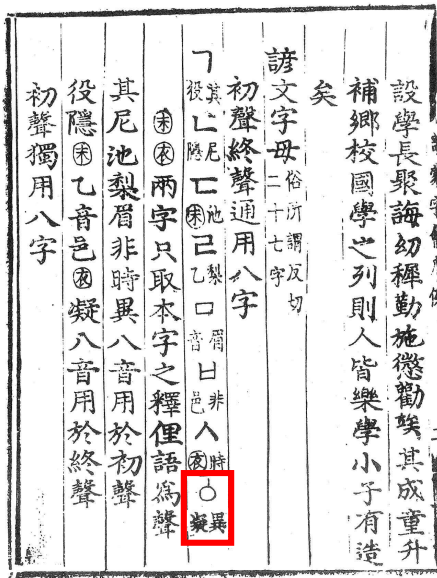 設學長聚誨幼穉勤施懲勸竢其成童升
補鄉校國學之列則人皆樂學小子有造
矣
諺文字母俗所謂反切二十七字
初聲終聲通用八字
ㄱ其役ㄴ尼隱ㄷ池末ㄹ梨乙ㅁ眉音ㅂ非邑ㅅ時衣ㆁ異凝
末衣兩字只取本字之釋俚語爲聲
其尼池梨眉非時異八音用於初聲
役隱末乙音邑衣凝八音用於終聲
初聲獨用八字